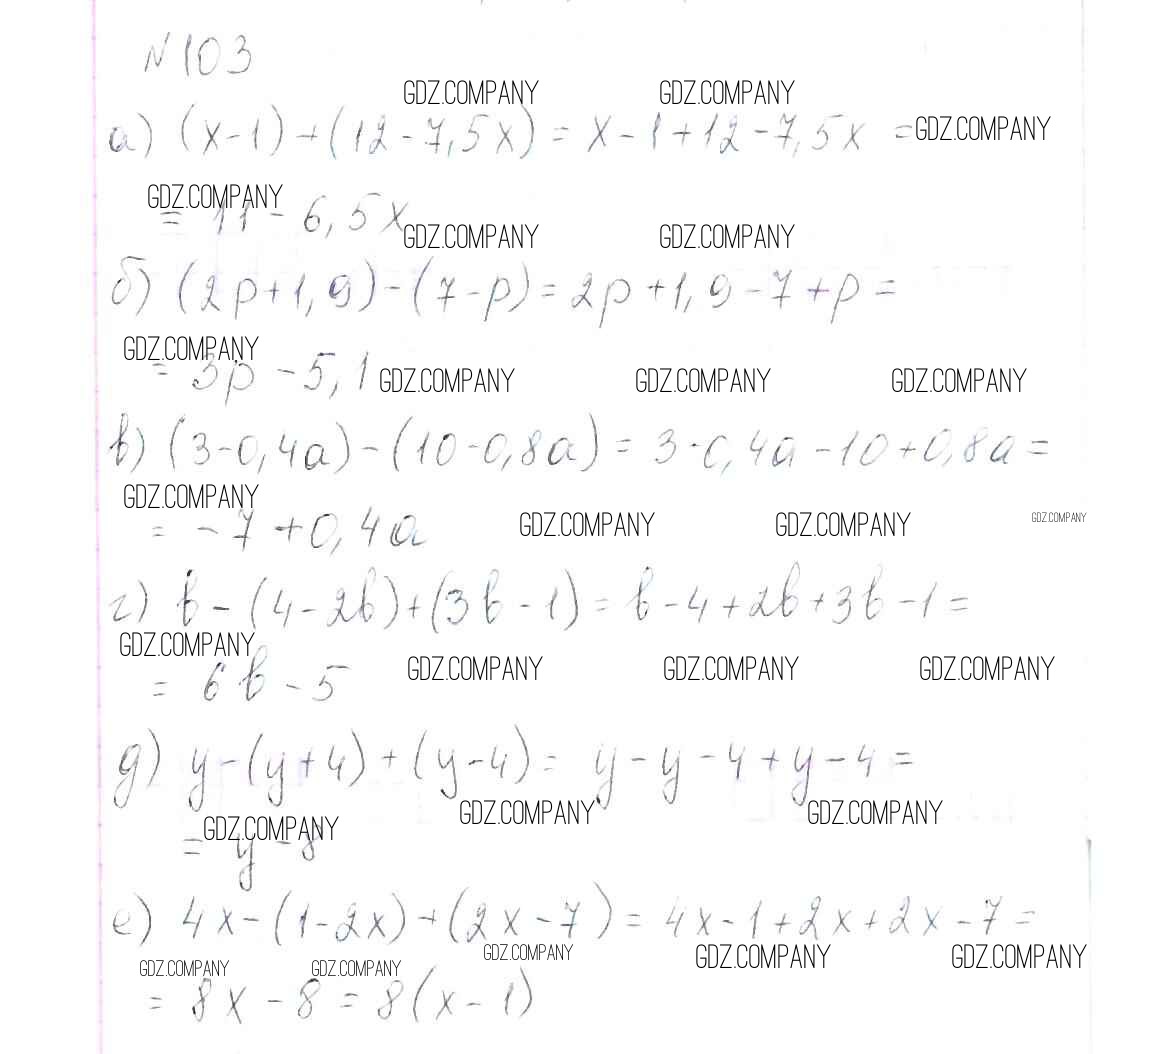 N103
GDZ.COMPANY GDZ.COMPANY
а) (x-1)+(12-7,5x)=x-1+12-7,5x = GDZ.COMPANY
GDZ.COMPANY
= 11-6,5x
GDZ.COMPANY GDZ.COMPANY
б) (2p+1,9)-(7-p)=2p+1,9-7+p=
GDZ.COMPANY
= 3p-5,1 GDZ.COMPANY GDZ.COMPANY GDZ.COMPANY
в) (3-0,4a)-(10-0,8a)=3-0,4a-10+0,8a=
GDZ.COMPANY
= -7+0,4a GDZ.COMPANY GDZ.COMPANY GDZ.COMPANY
г) b-(4-2b)+(3b-1)=b-4+2b+3b-1=
GDZ.COMPANY
= 6b-5 GDZ.COMPANY GDZ.COMPANY GDZ.COMPANY
д) y-(y+4)+(y-4)= y-y-4+y-4=
GDZ.COMPANY GDZ.COMPANY GDZ.COMPANY
= y-8
е) 4x-(1-2x)+(2x-7)=4x-1+2x+2x-7=
GDZ.COMPANY GDZ.COMPANY GDZ.COMPANY GDZ.COMPANY GDZ.COMPANY
= 8x-8=8(x-1)